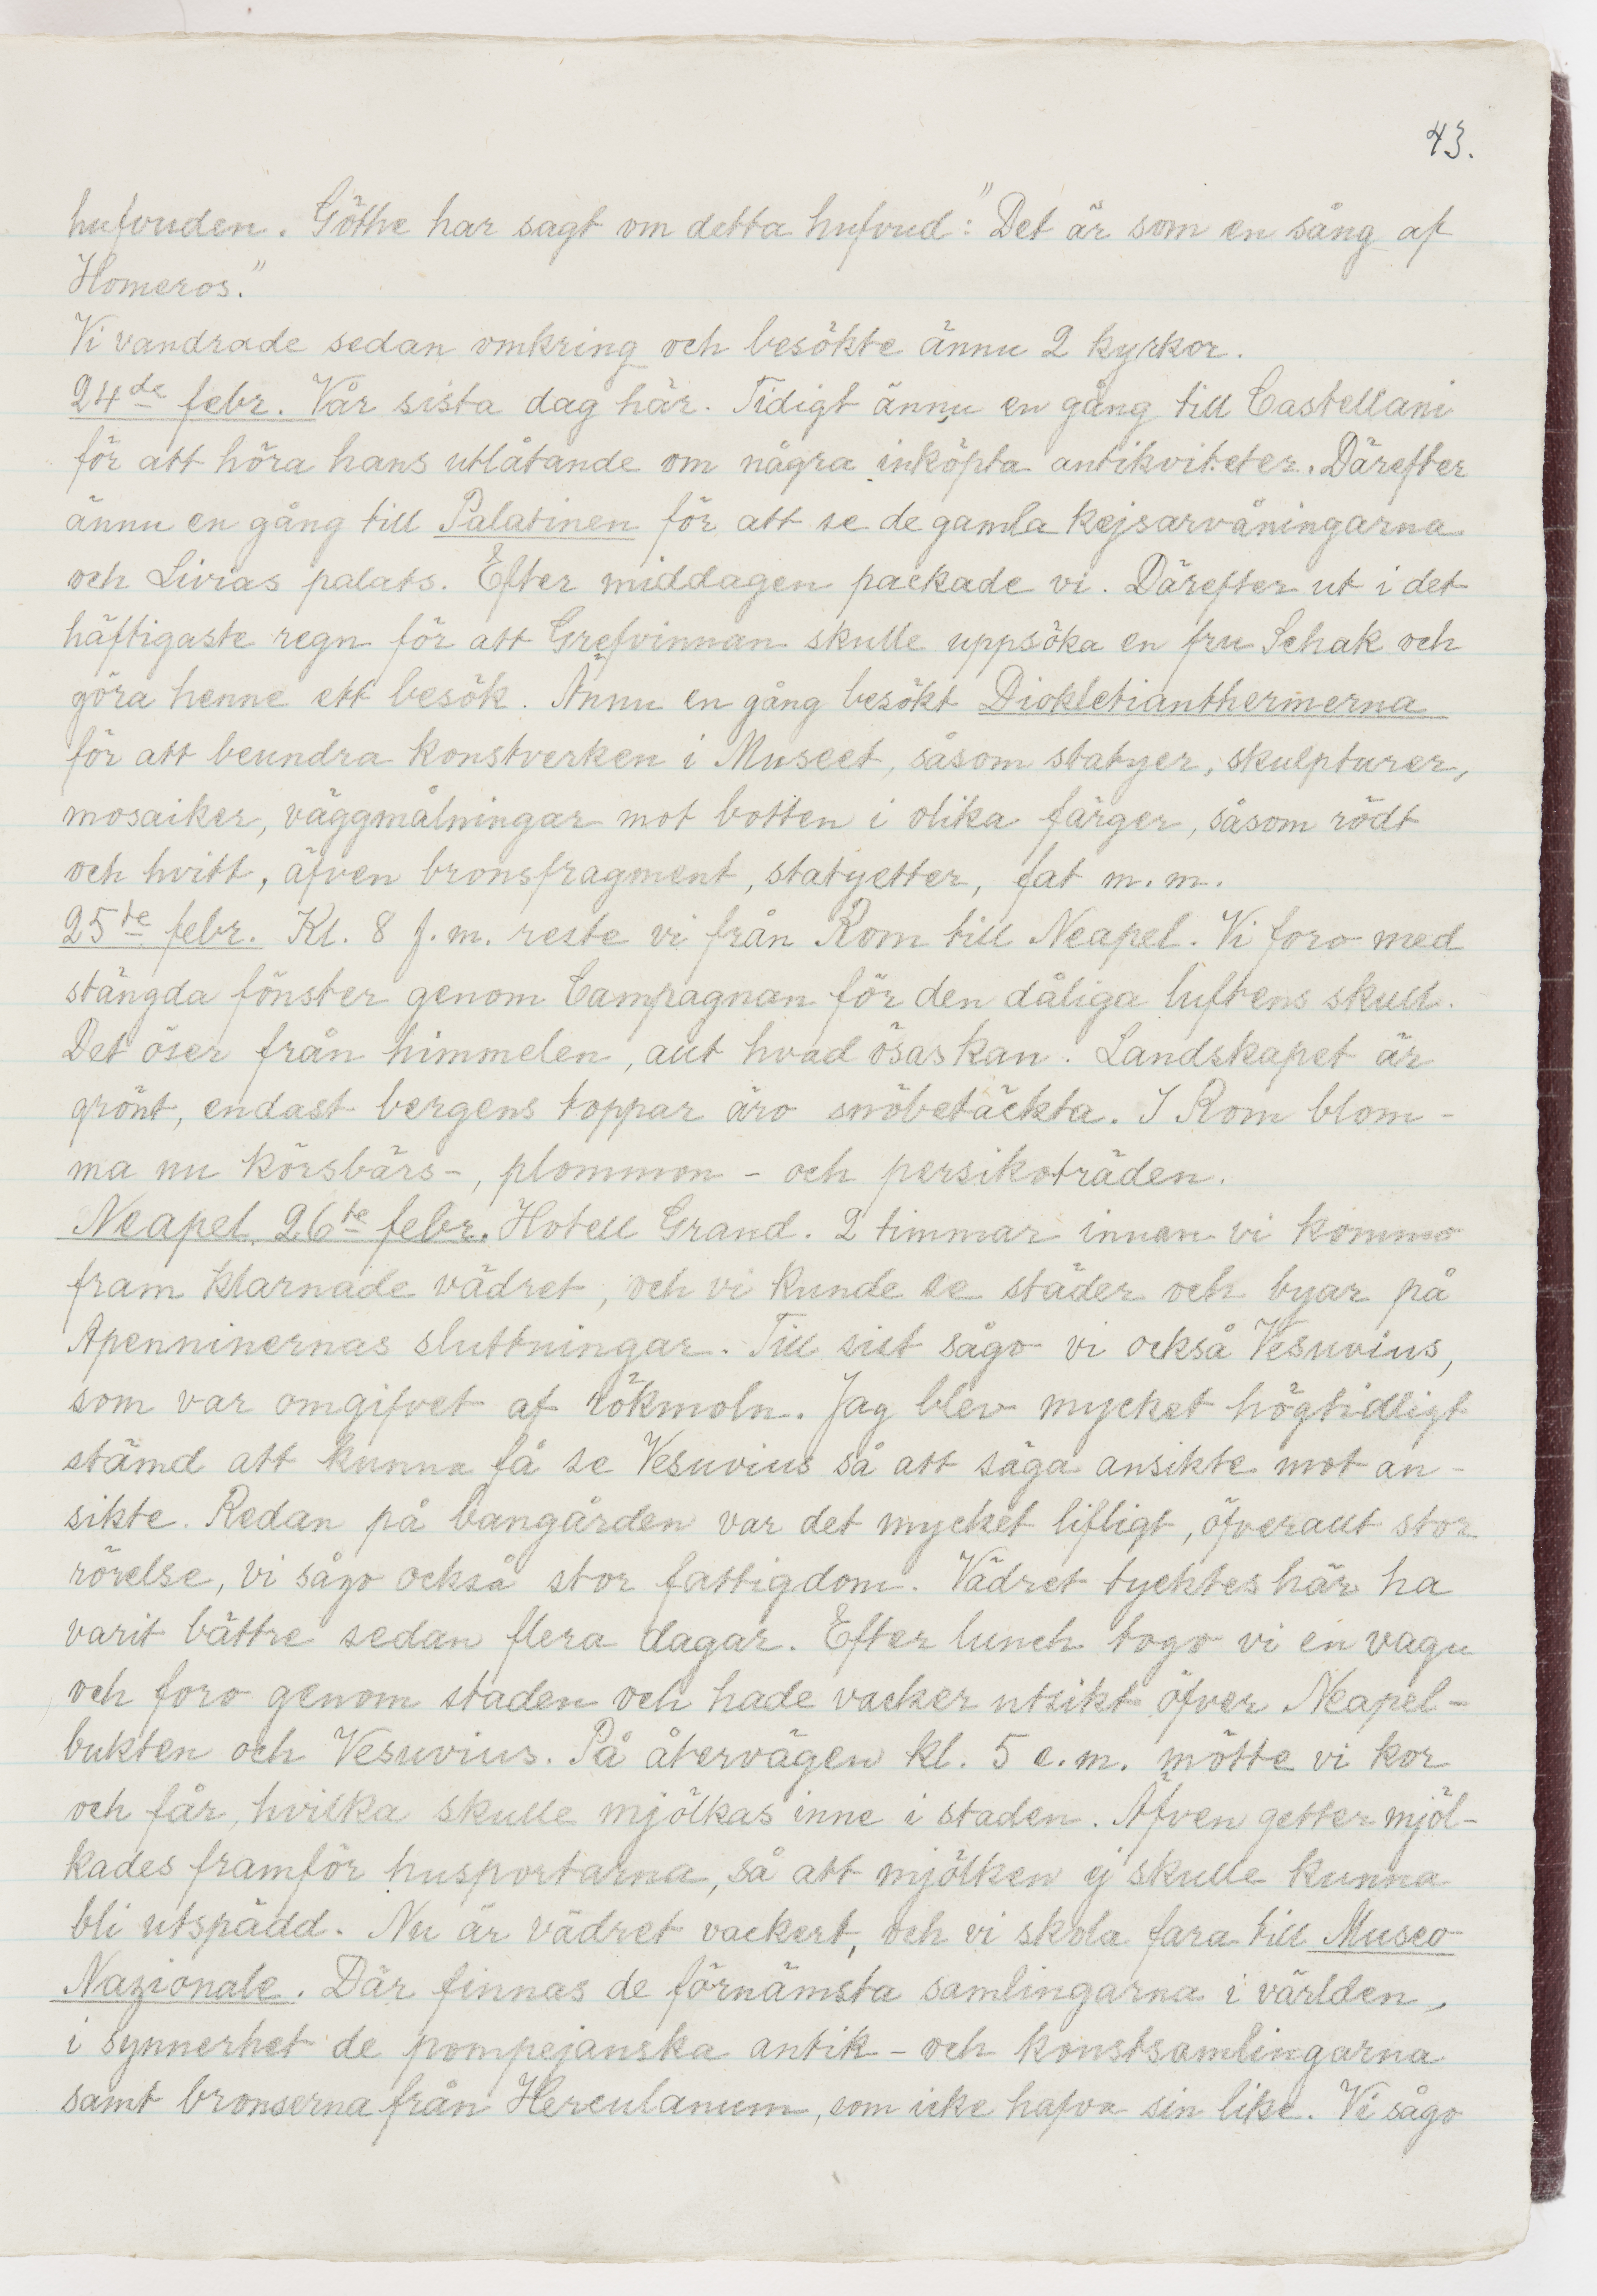 43.
hufvuden. Göthe har sagt om detta hufvud: "Det är som en sång af
Homeros."
Vi vandrade sedan omkring och besökte ännu 2 kyrkor.
24de febr. Vår sista dag här. Tidigt ännu en gång till Castellani
för att höra hans utlåtande om några inköpta antikviteter. Därefter
ännu en gång till Palatinen för att se de gamla kejsarvåningarna
och Livias palats. Efter middagen packade vi. Därefter ut i det
häftigaste regn för att Grefvinnan skulle uppsöka en fru Schak och
göra henne ett besök. Ännu en gång besökt Diokletianthermerna
för att beundra konstverken i Museet, såsom statyer, skulpturer,
mosaiker, väggmålningar mot botten i olika färger, såsom rödt
och hvitt, äfven bronsfragment, statyetter, fat m.m.
25te febr. Kl. 8 f.m. reste vi från Rom till Neapel. Vi foro med
stängda fönster genom Campagnan för den dåliga luftens skull.
Det öser från himmelen, allt hvad ösas kan. Landskapet är
grönt, endast bergens toppar äro snöbetäckta. I Rom blom-
ma nu körsbärs-, plommon- och persikoträden.
Neapel, 26te febr. Hotell Grand. 2 timmar innan vi kommo
fram klarnade vädret, och vi kunde se städer och byar på
Apenninernas sluttningar. Till sist sågo vi också Vesuvius,
som var omgifvet af rökmoln. Jag blev mycket högtidligt
stämd att kunna få se Vesuvius så att säga ansikte mot an-
sikte. Redan på bangården var det mycket lifligt, öfverallt stor
rörelse, vi sågo också stor fattigdom. Vädret tycktes här ha
varit bättre sedan flera dagar. Efter lunch togo vi en vagn
och foro genom staden och hade vacker utsikt öfver Neapel-
bukten och Vesuvius. På återvägen kl. 5 e.m. mötte vi kor
och får, hvilka skulle mjölkas inne i staden. Äfven getter mjöl-
kades framför husportarna, så att mjölken ej skulle kunna
bli utspädd. Nu är vädret vackert, och vi skola fara till Museo
Nazionale. Där finnas de förnämsta samlingarna i världen,
i synnerhet de pompejanska antik- och konstsamlingarna
samt bronserna från Herculanum, som icke hafva sin like. Vi sågo